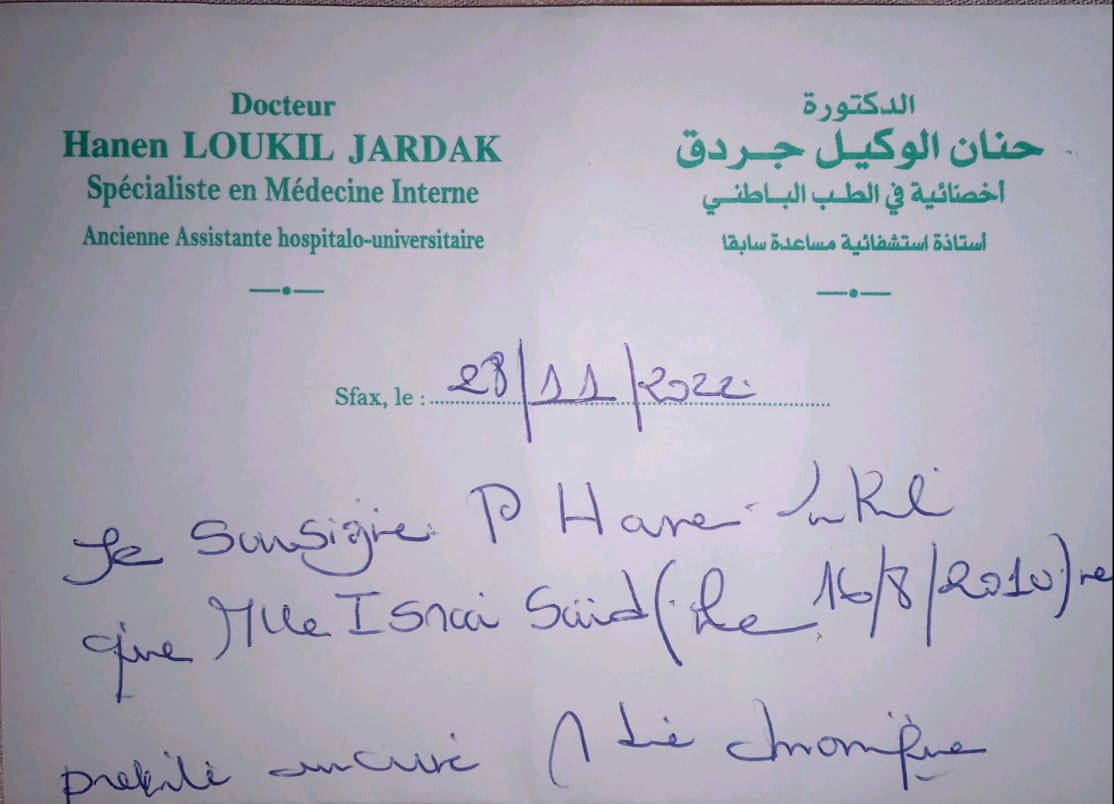 Docteur
Hanen LOUKIL JARDAK
Spécialiste en Médecine Interne
Ancienne Assistante hospitalo-universitaire
الدكتورة
حنان الوكيل جردق
أخصائية في الطب الباطني
أستاذة استشفائية مساعدة سابقا
Sfax, le : 28/11/2022
Je soussigné
que Mlle Saïd (le 16/8/2010)
chronique